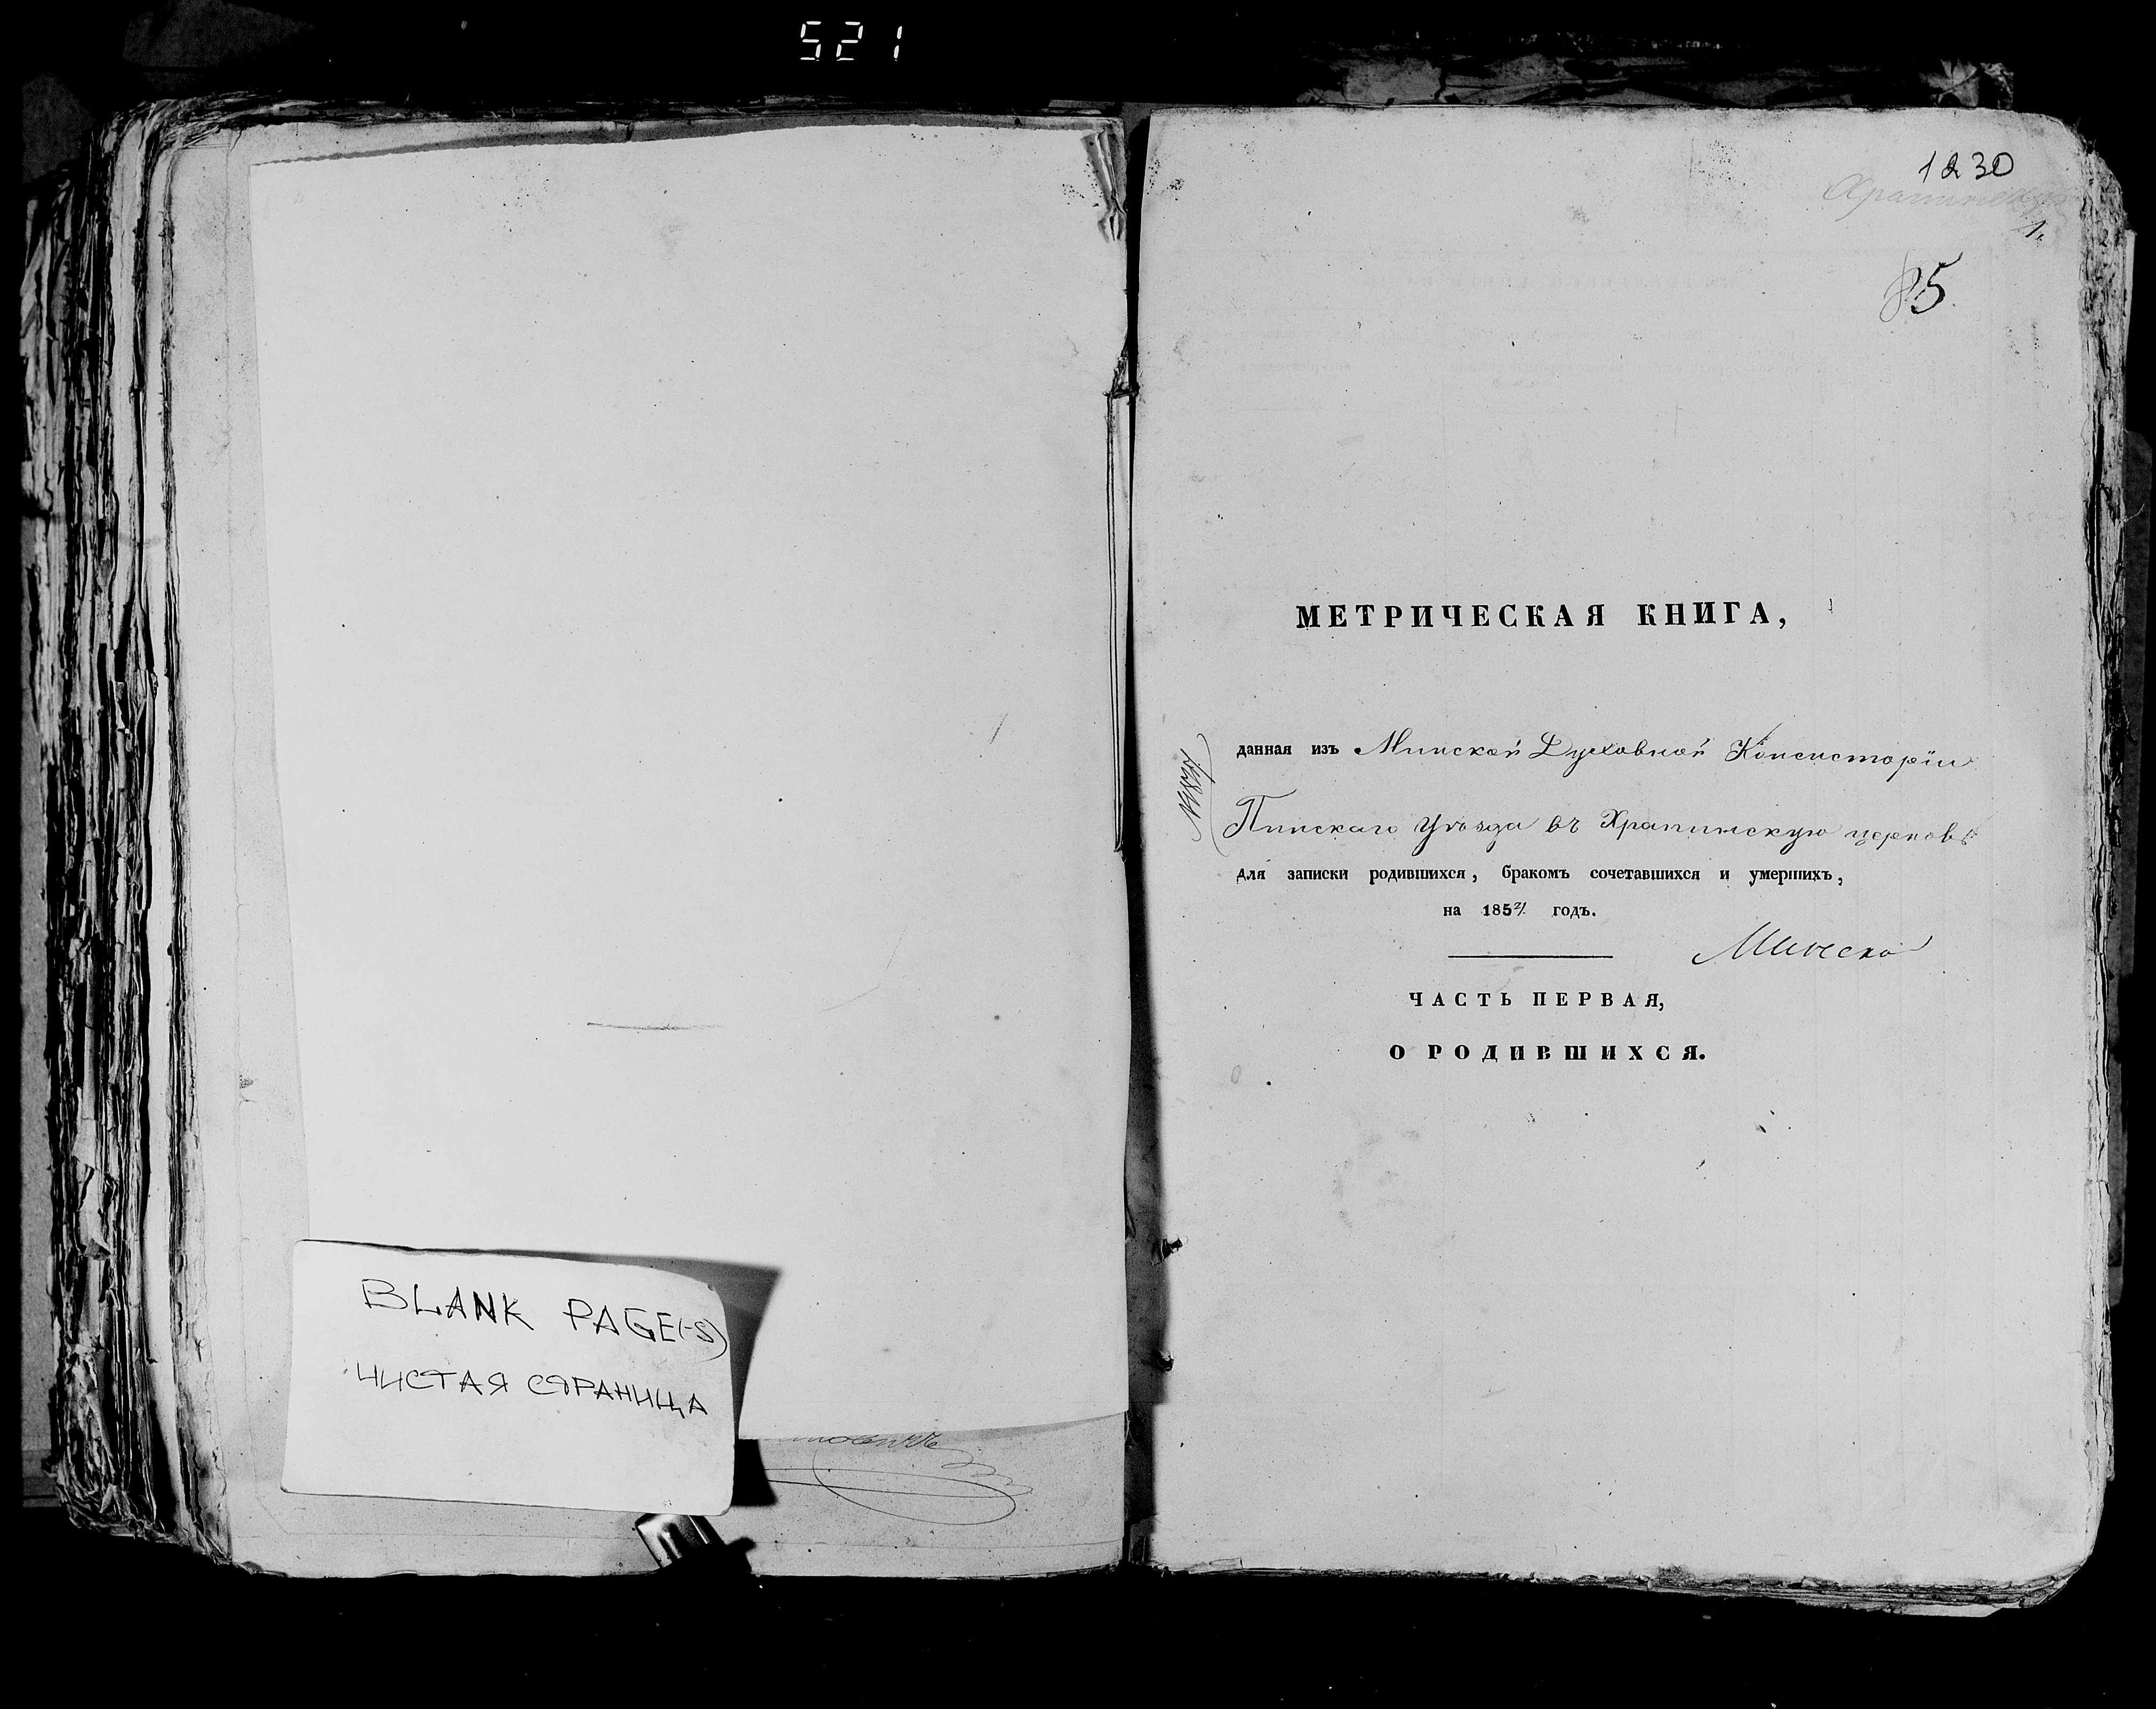 521
BLANK PAGE(-S)
ЧИСТАЯ СТРАНИЦА
1230
1.
85
МЕТРИЧЕСКАЯ КНИГА,
данная изъ Минской Духовной Консисторіи
Пинскаго Уѣзда въ Храпинскую церковь
для записки родившихся, бракомъ сочетавшихся и умершихъ,
на 185 годъ.
ЧАСТЬ ПЕРВАЯ,
О РОДИВШИХСЯ.